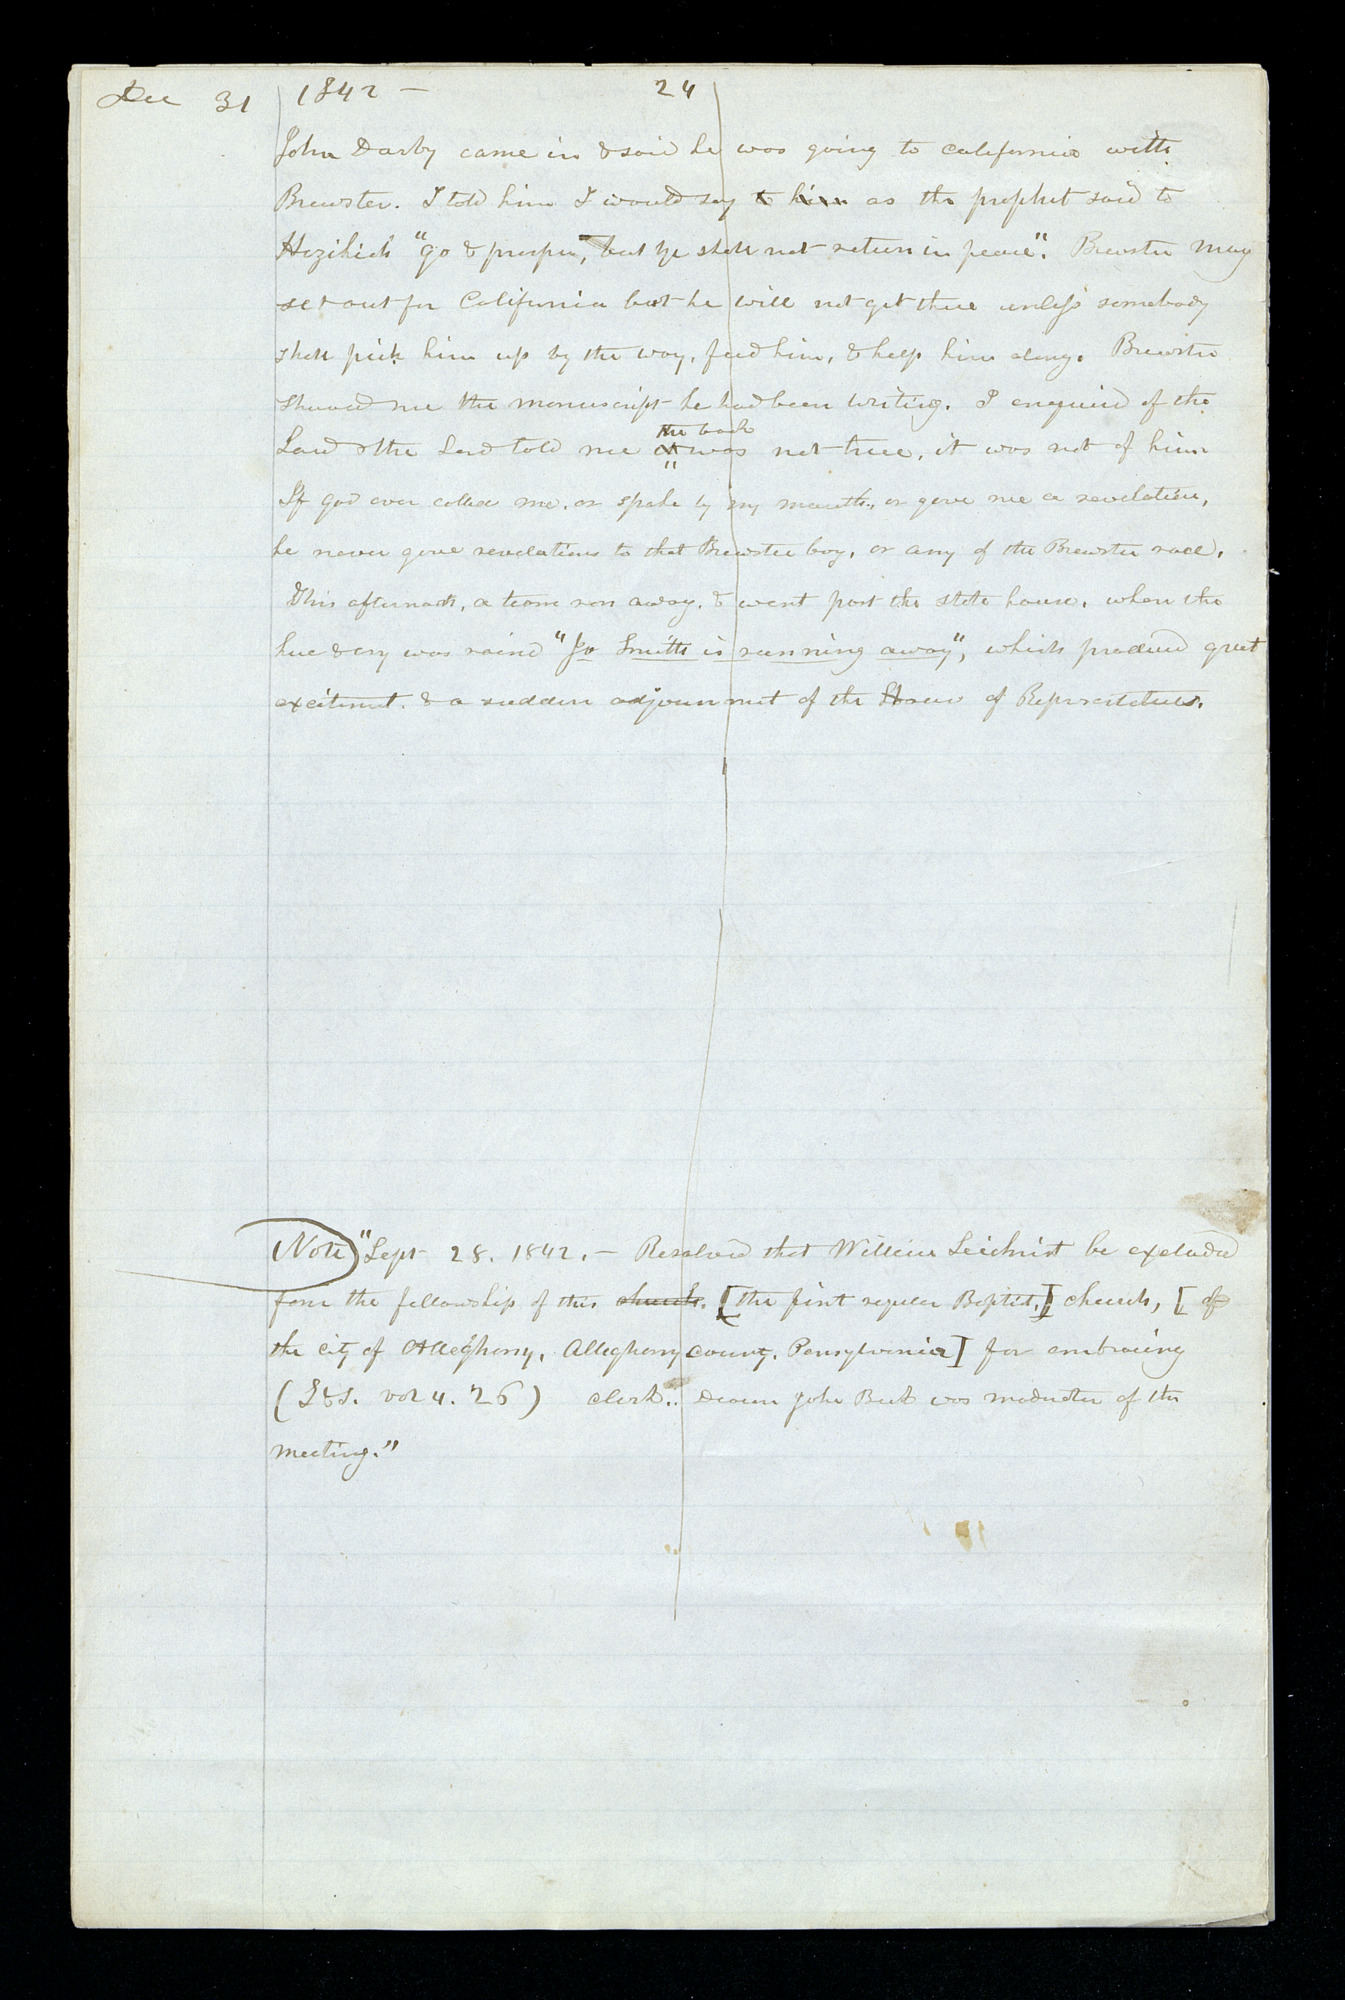 Dec 31 1842 — 24
John Darby came in & said he was going to California with
Brewster. I told him I would say to him as the prophet said to
Hezikiah "go & prosper, but ye shall not return in peace". Brewster may
set out for California but he will not get there unless somebody
shall pick him up by the way, feed him, & help him along. Brewster
showed me the manuscript he had been writing. I enquired of the
Lord & the Lord told me the book was not true, it was not of him
If god ever called me, or spake by my mouth, or gave me a revelation,
he never gave revelations to that Brewster boy, or any of the Brewster race.
This afternoon, a team ran away, & went past the state house, when the
hue & cry was raised "Jo Smith is running away", which produced great
excitement. & a sudden adjournment of the House of Representatives.
Note "Sept 28. 1842. — Resolved that William Seichrist be excluded
from the fellowship of this church. [the first regular Baptist,] church, [of
the city of Alleghany, Alleghany county, Pensylvania] for embracing
(T&S. vol 4. 26) clerk.. Deacon John Beck was moderator of the
meeting."